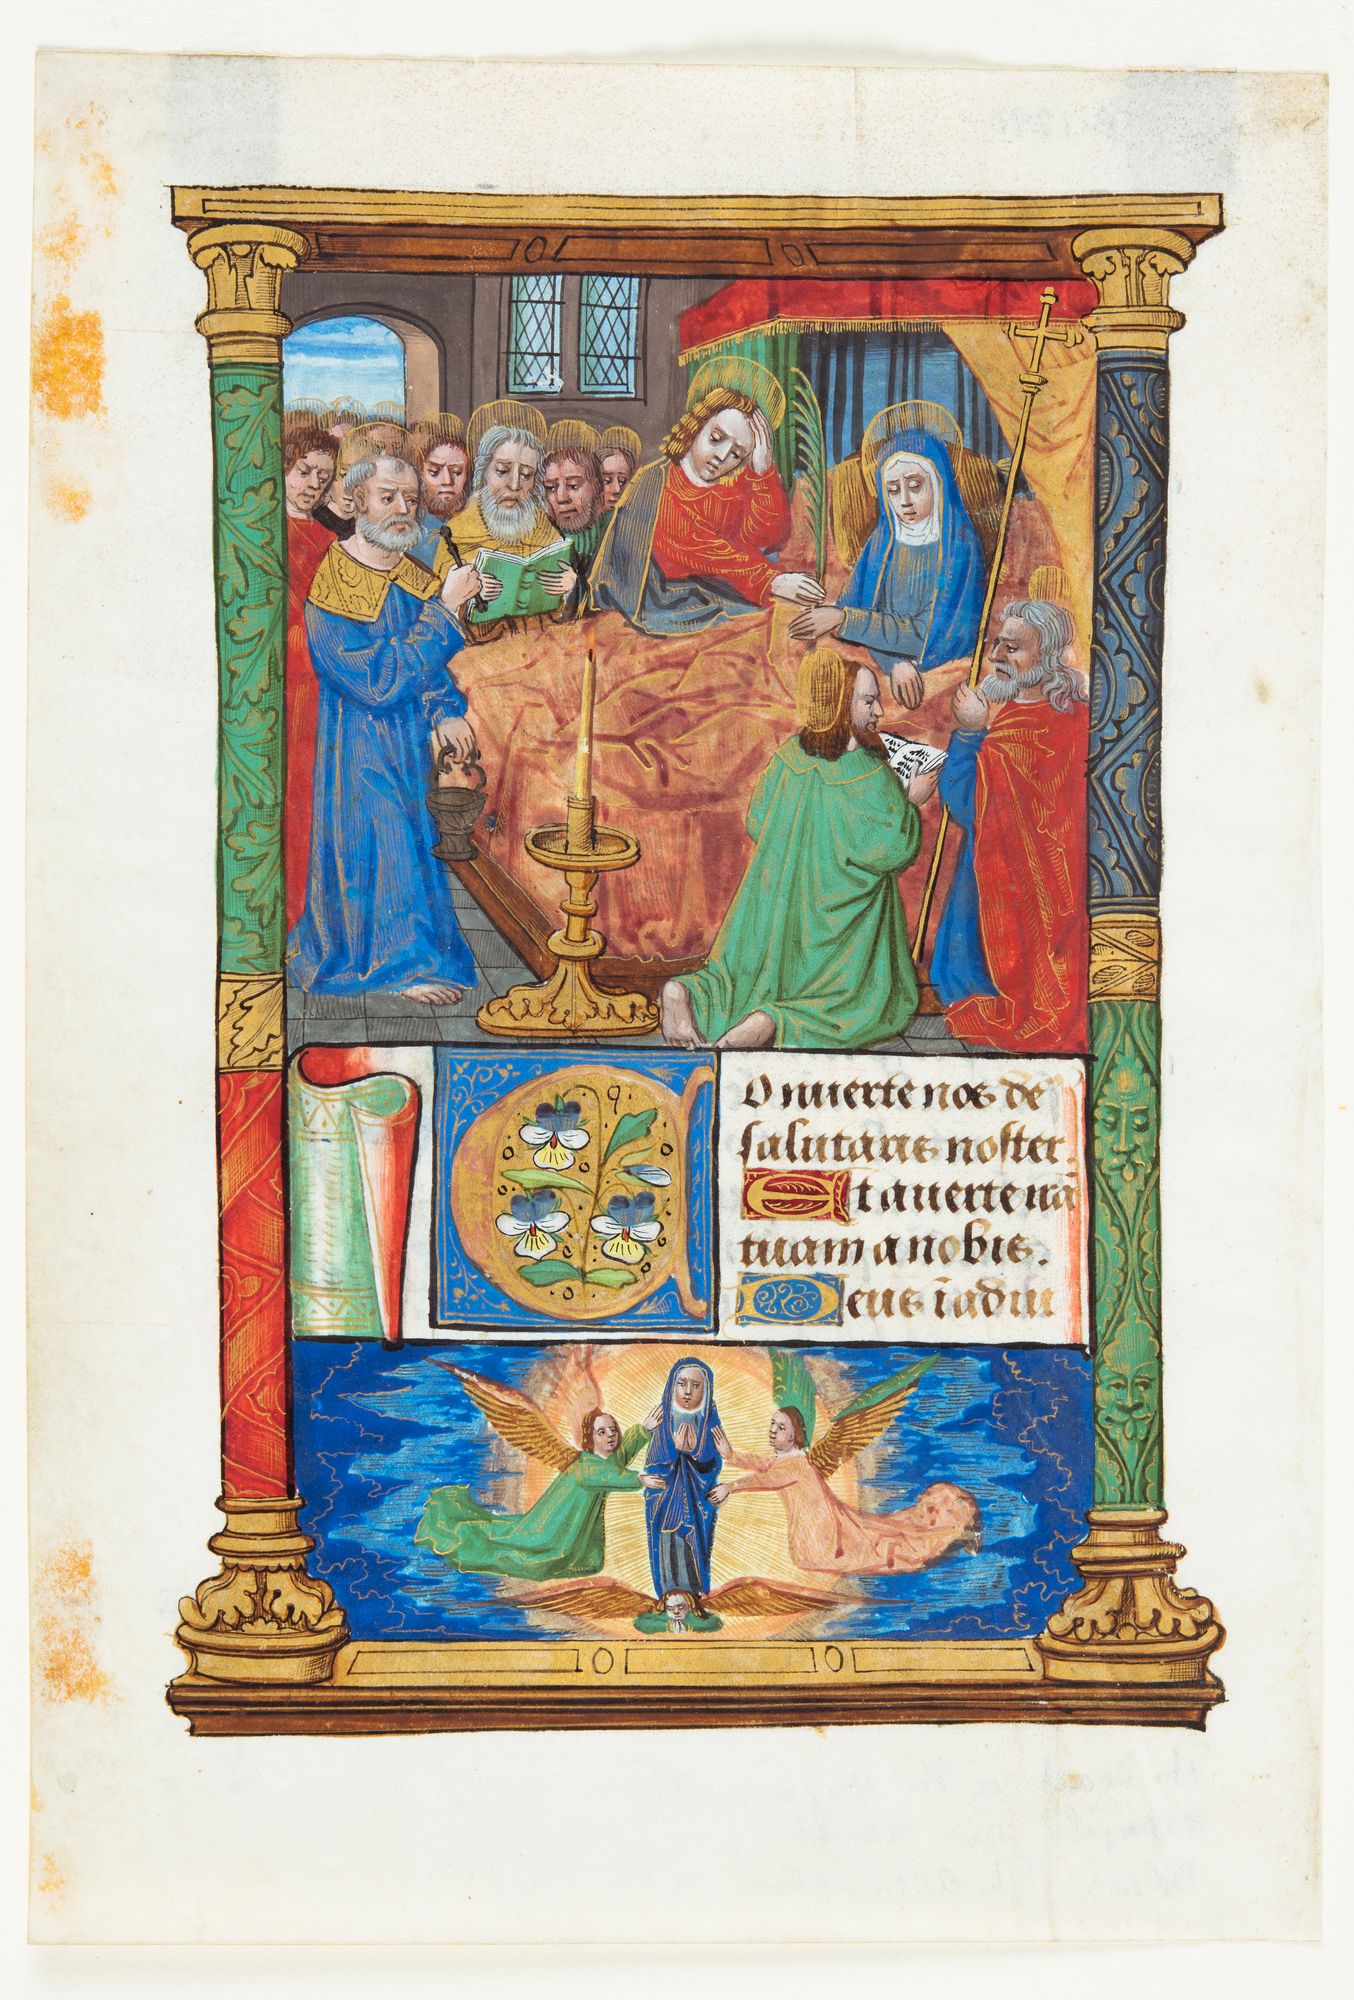 Conuerte nos de9
salutaris noster.
Et auerte irā
tuam a nobis.
Deus ī adiu